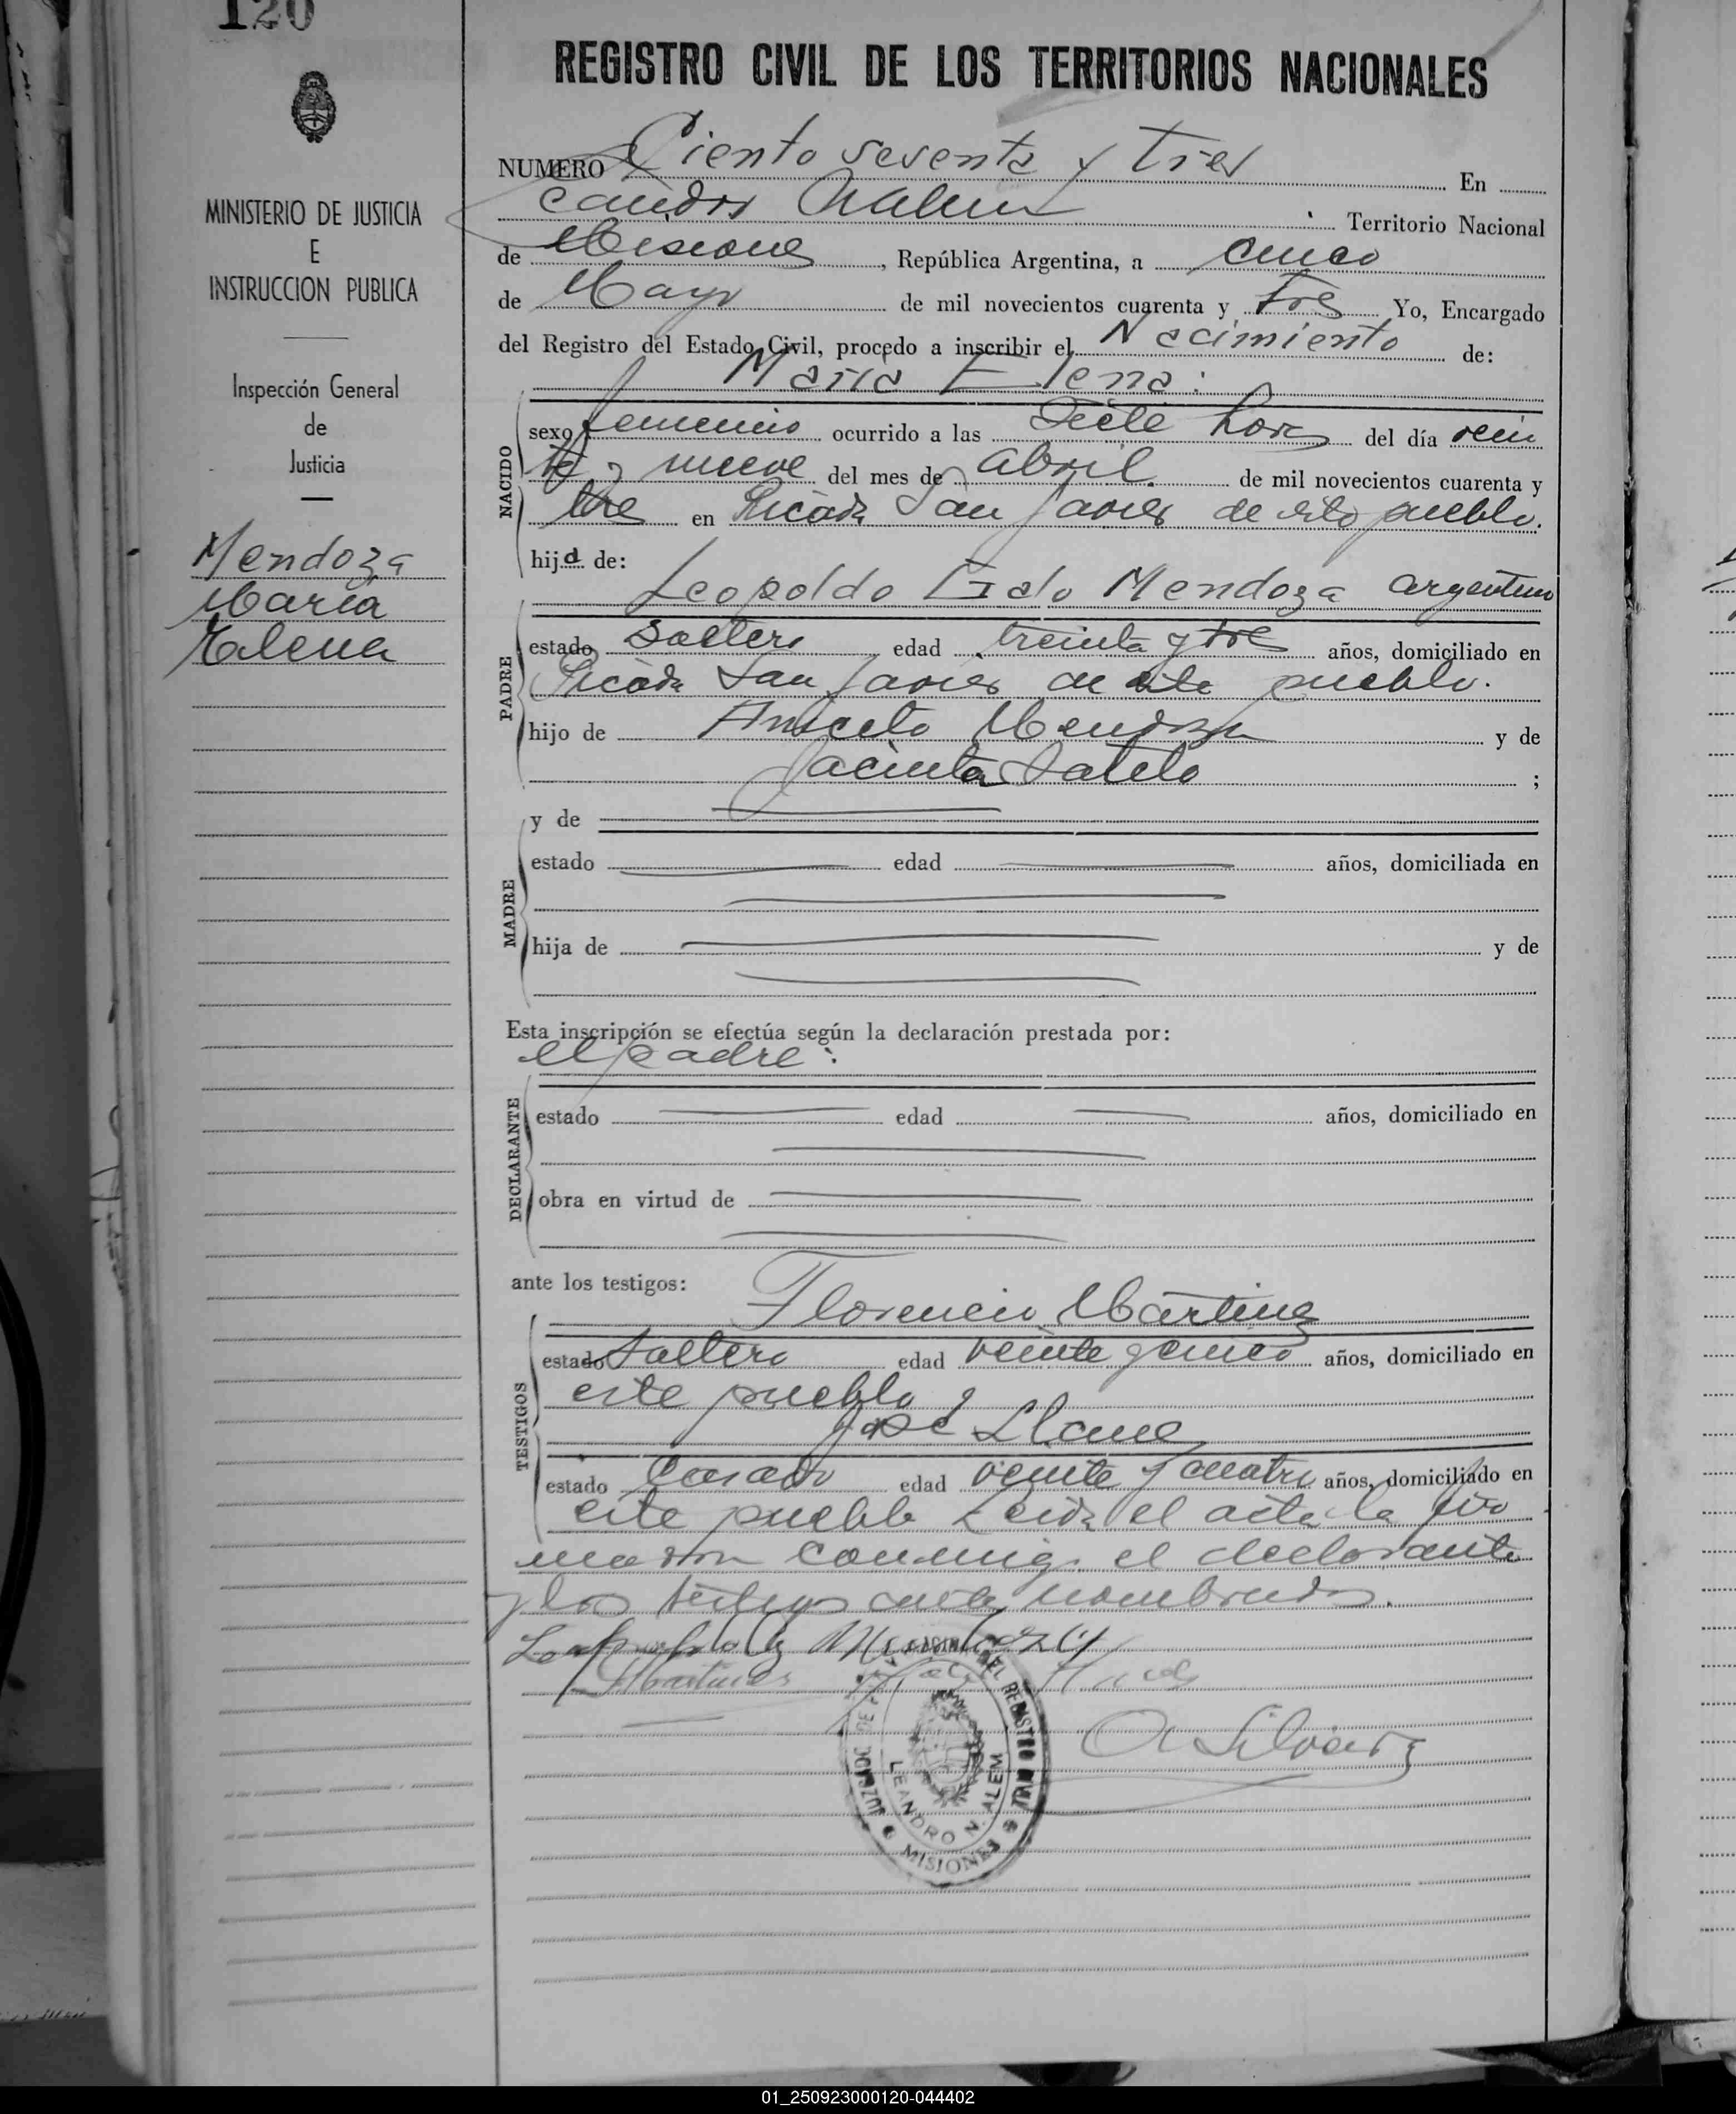 120
REGISTRO CIVIL DE LOS TERRITORIOS NACIONALES
MINISTERIO DE JUSTICIA
E
INSTRUCCION PUBLICA
Inspección General
de
Justicia
Mendoza
María
Elena
NUMERO Ciento sesenta y tres En
Leandro N Alem Territorio Nacional
de Misiones, República Argentina, a cinco
de Mayo de mil novecientos cuarenta y tres Yo, Encargado
del Registro del Estado Civil, procedo a inscribir el Nacimiento de:
Maria Elena:
NACIDO
sexo femenino ocurrido a las siete horas del día vein
te y nueve del mes de abril de mil novecientos cuarenta y
tres en Picada San Javier de este pueblo.
hija de:
Leopoldo Mendoza argentino
PADRE
estado soltero edad treinta y tres años, domiciliado en
Picada San Javier de este pueblo.
hijo de Aniceto Mendoza y de
Jacinta Sotelo ;
MADRE
y de
estado edad años, domiciliada en
hija de y de
Esta inscripción se efectúa según la declaración prestada por:
el padre:
DECLARANTE
estado edad años, domiciliado en
obra en virtud de
ante los testigos:
TESTIGOS
Florencio Martinez
estado Soltero edad veinte y cinco años, domiciliado en
este pueblo y
José Llane
estado Casado edad veinte y cuatro años, domiciliado en
este pueblo Leida el acta la fir
maron conmigo el declarante
y los testigos ante nombrados.
Mendoza
Martinez
JUZGADO DE PAZ REGISTRO CIVIL
LEANDRO N. ALEM
MISIONES